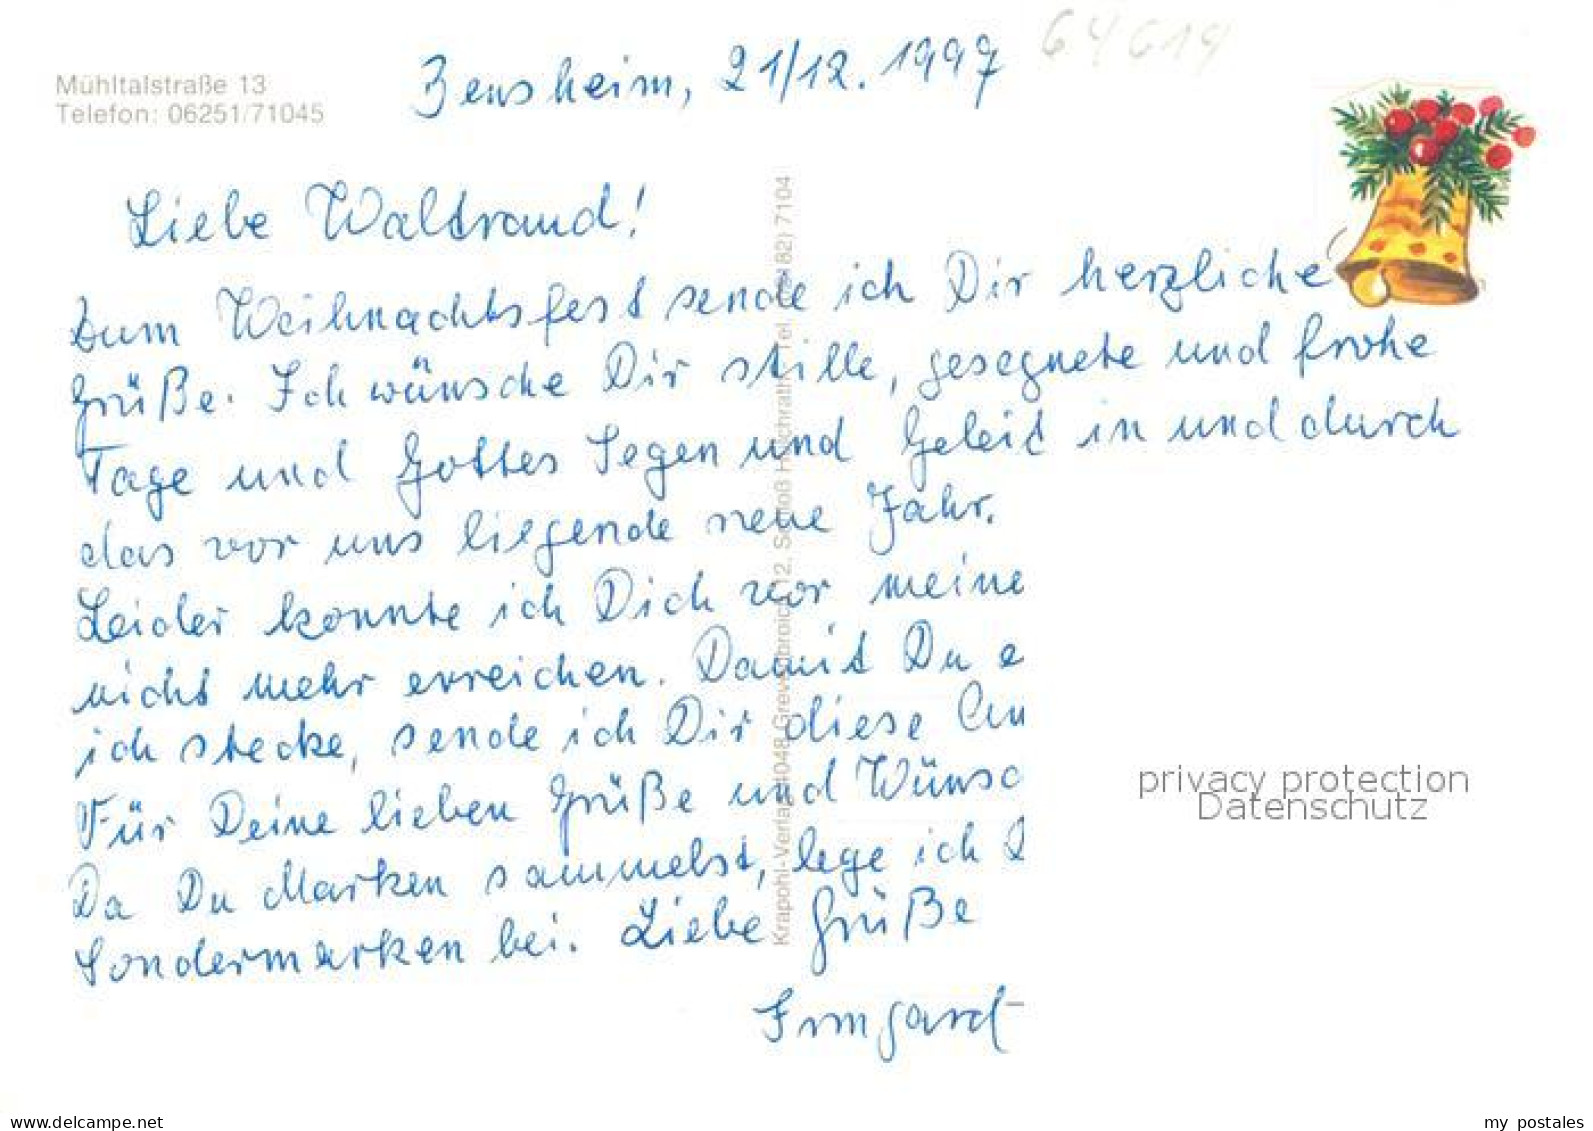 64619
Mühltalstraße 13
Telefon: 06251/71045
Bensheim, 21/12. 1997
Liebe Waltraud!
Zum Weihnachtsfest sende ich Dir herzliche
Grüße. Ich wünsche Dir stille, gesegnete und frohe
Tage und Gottes Segen und Geleit in und durch
das vor uns liegende neue Jahr.
Leider konnte ich Dich vor meine
nicht mehr erreichen. Damit Du e
ich stecke, sende ich Dir diese
Für Deine lieben Grüße und Wünsc
Da Du Marken sammelst, lege ich
Sondermarken bei. Liebe Grüße
Irmgard
Krapohl-Verlag, 4048 Grevenbroich 12, Schloß Hülchrath, Tel. 82) 7104
privacy protection
Datenschutz
www.delcampe.net
my_postales